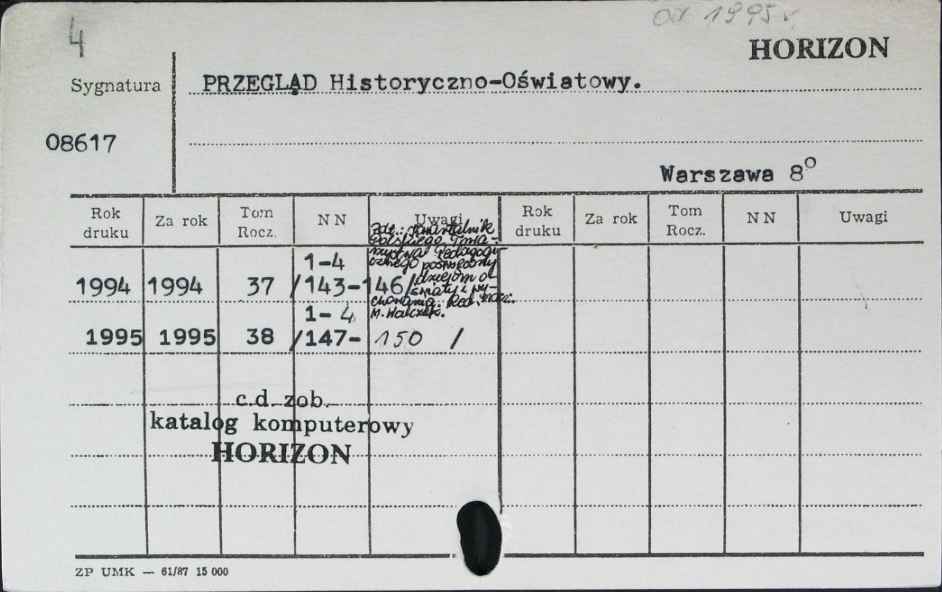 4
od 1995 r
HORIZON
Sygnatura
PRZEGLĄD Historyczno-Oświatowy.
08617
Warszawa 8°
Rok druku Za rok Tom Rocz. NN Uwagi Rok druku Za rok Tom Rocz. NN Uwagi
Kwartalnik
Polskiego Towa-
rzystwa Pedagogi-
cznego poświęcony
dziejom o-
światy i wy-
chowania. Red. nacz.
1-4
1994 1994 37 /143-146/
1-4
M. Walczak.
1995 1995 38 /147-150 /
c.d. zob.
katalog komputerowy
HORIZON
ZP UMK — 61/87 15 000